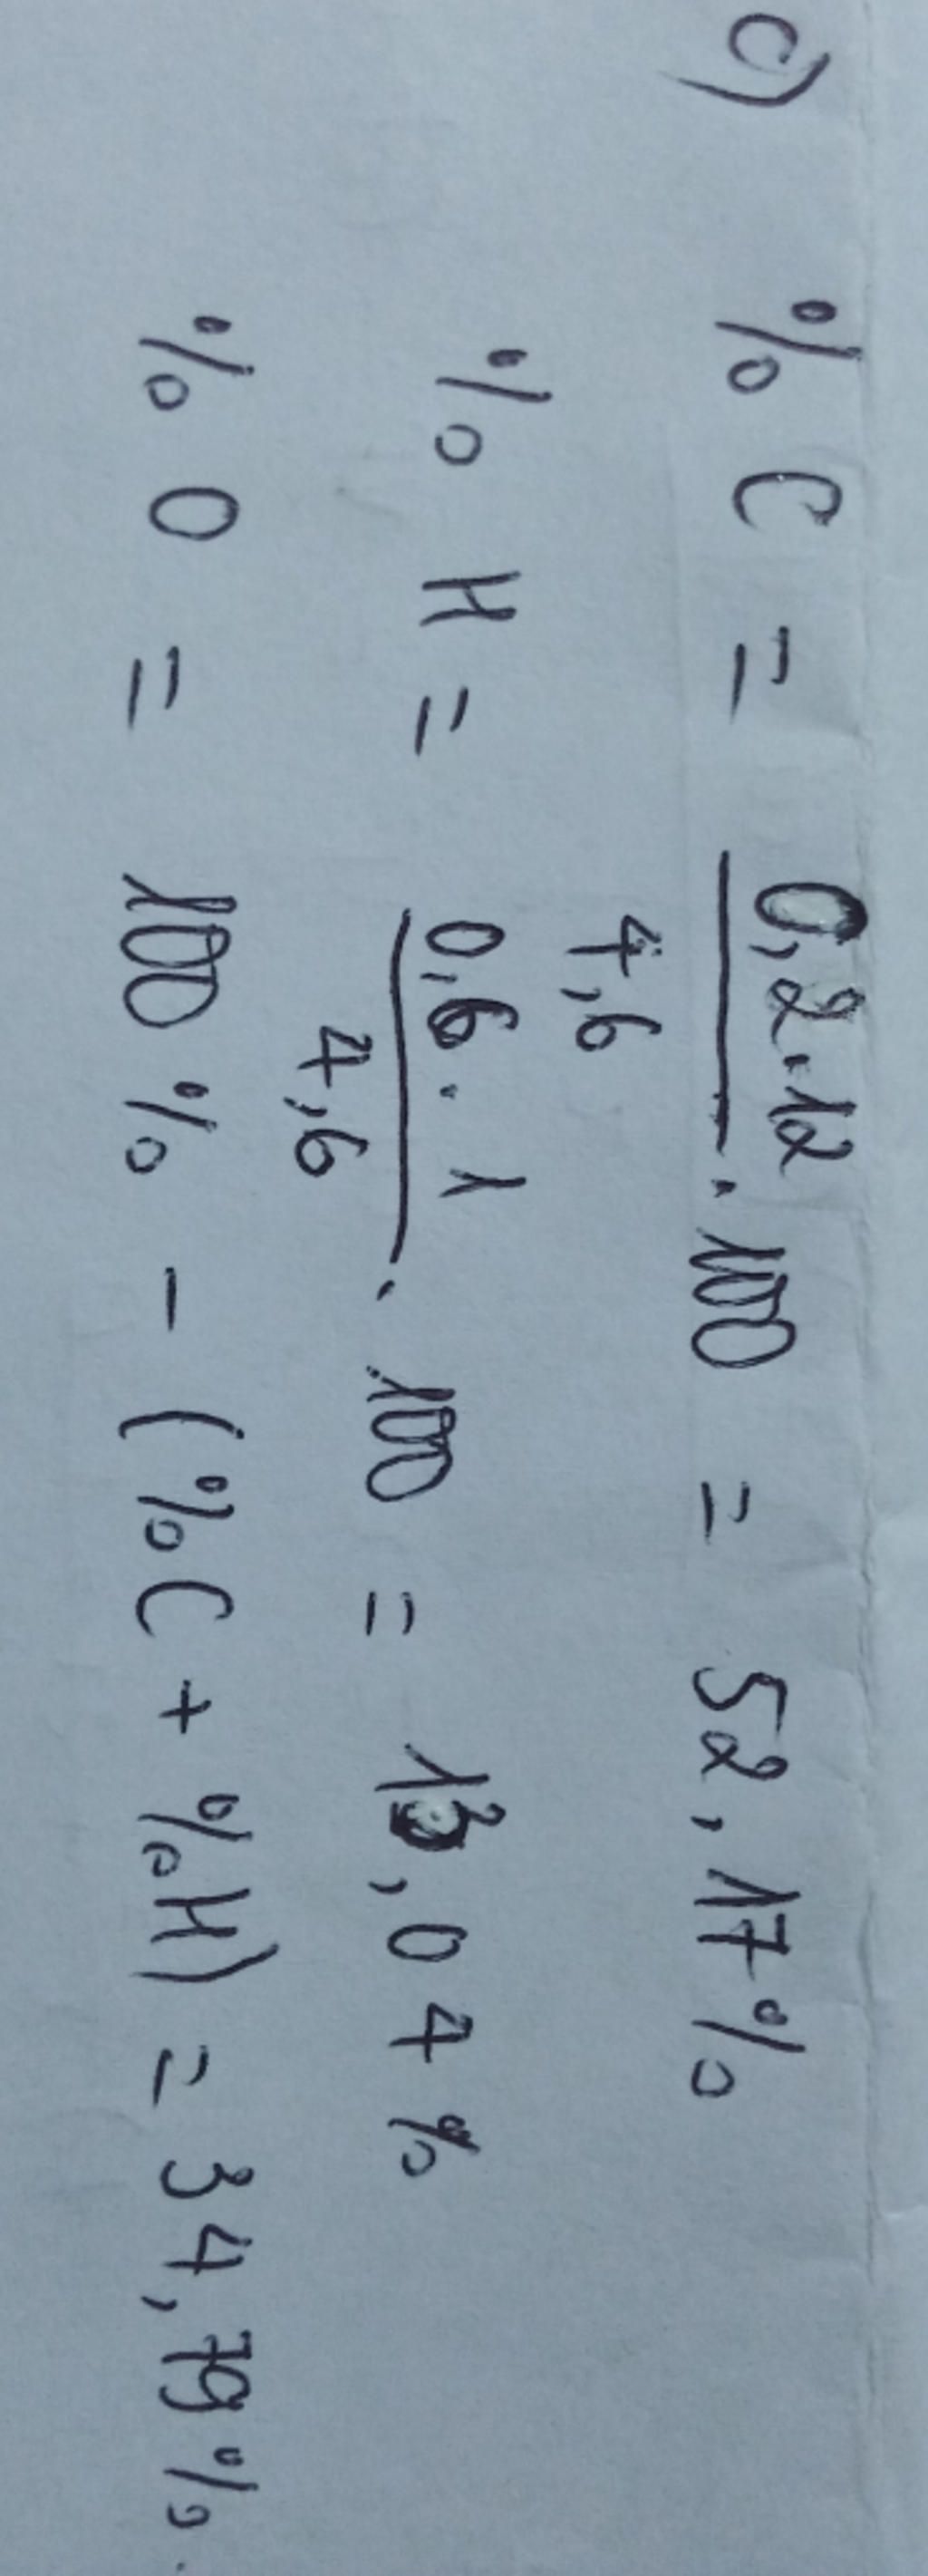 c) % C = 0,2.12 / 4,6 . 100 = 52,17%
% H = 0,6 . 1 / 4,6 . 100 = 13,04%
% O = 100% - (%C + %H) = 34,79%.